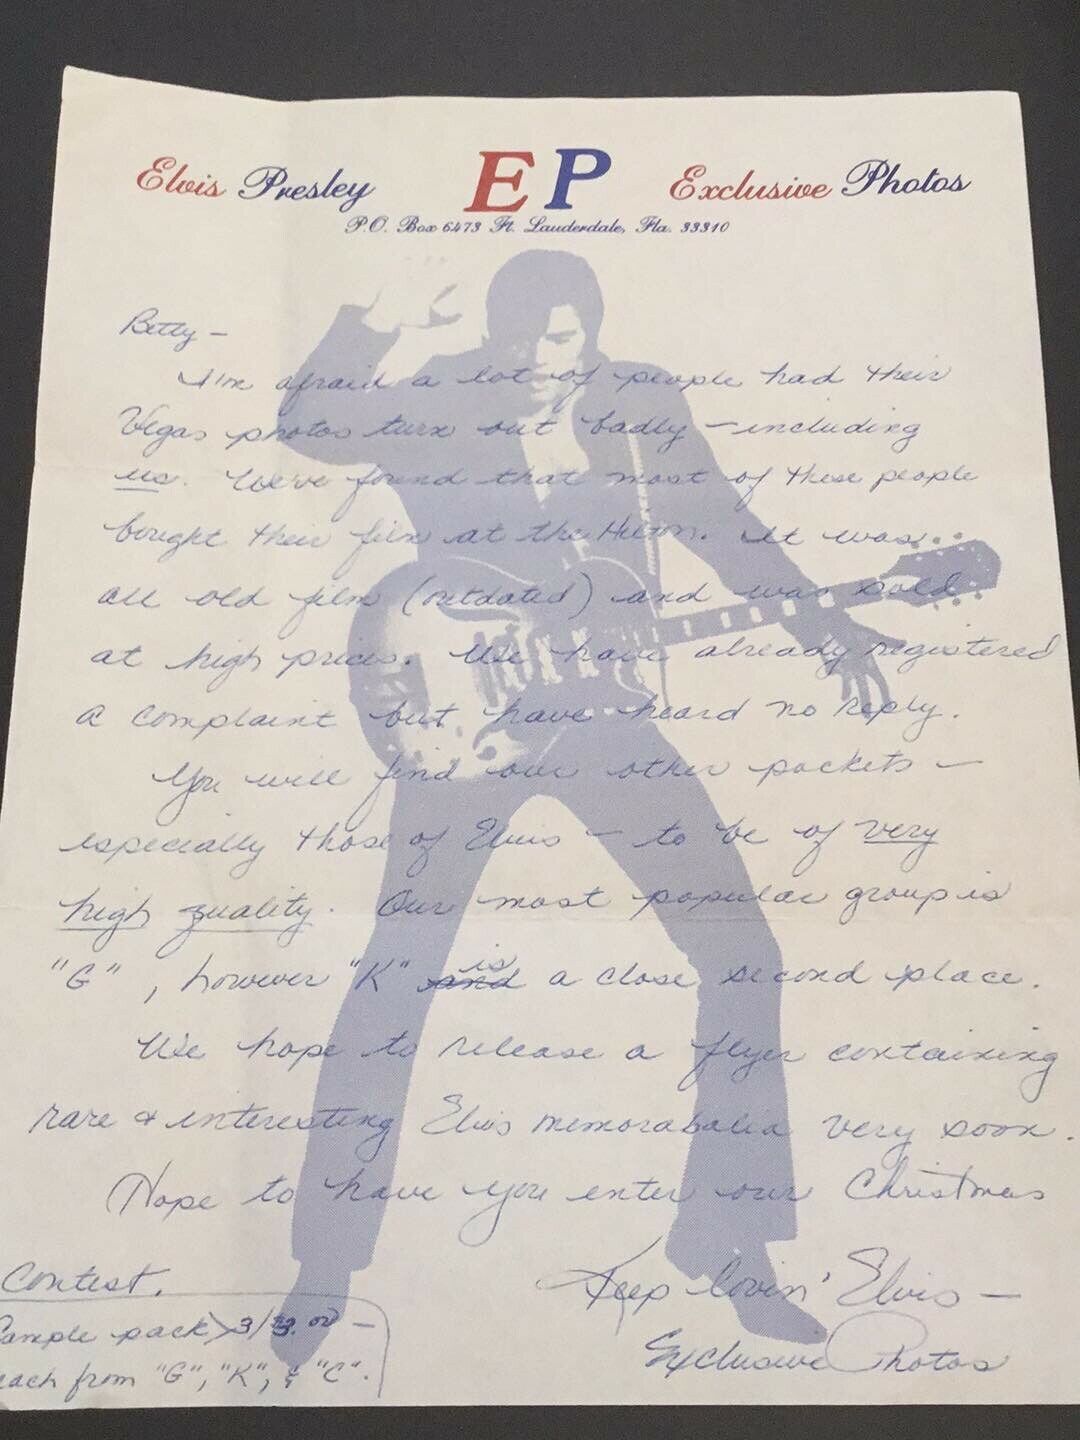 Elvis Presley EP Exclusive Photos
P.O. Box 6473 Ft. Lauderdale, Fla. 33310
Betty –
I'm afraid a lot of people had their
Vegas photos turn out badly – including
us. We've found that most of these people
bought their film at the Hilton. It was
all old film (outdated) and was sold
at high prices. We have already registered
a complaint but have heard no reply.
You will find our other packets –
especially those of Elvis – to be of very
high quality. Our most popular group is
"G", however "K" and is a close second place.
We hope to release a flyer containing
rare & interesting Elvis memorabalia very soon.
Hope to have you enter our Christmas
Contest.
Keep lovin' Elvis –
Exclusive Photos
Sample pack > 3/ –
each from "G", "K", & "C".